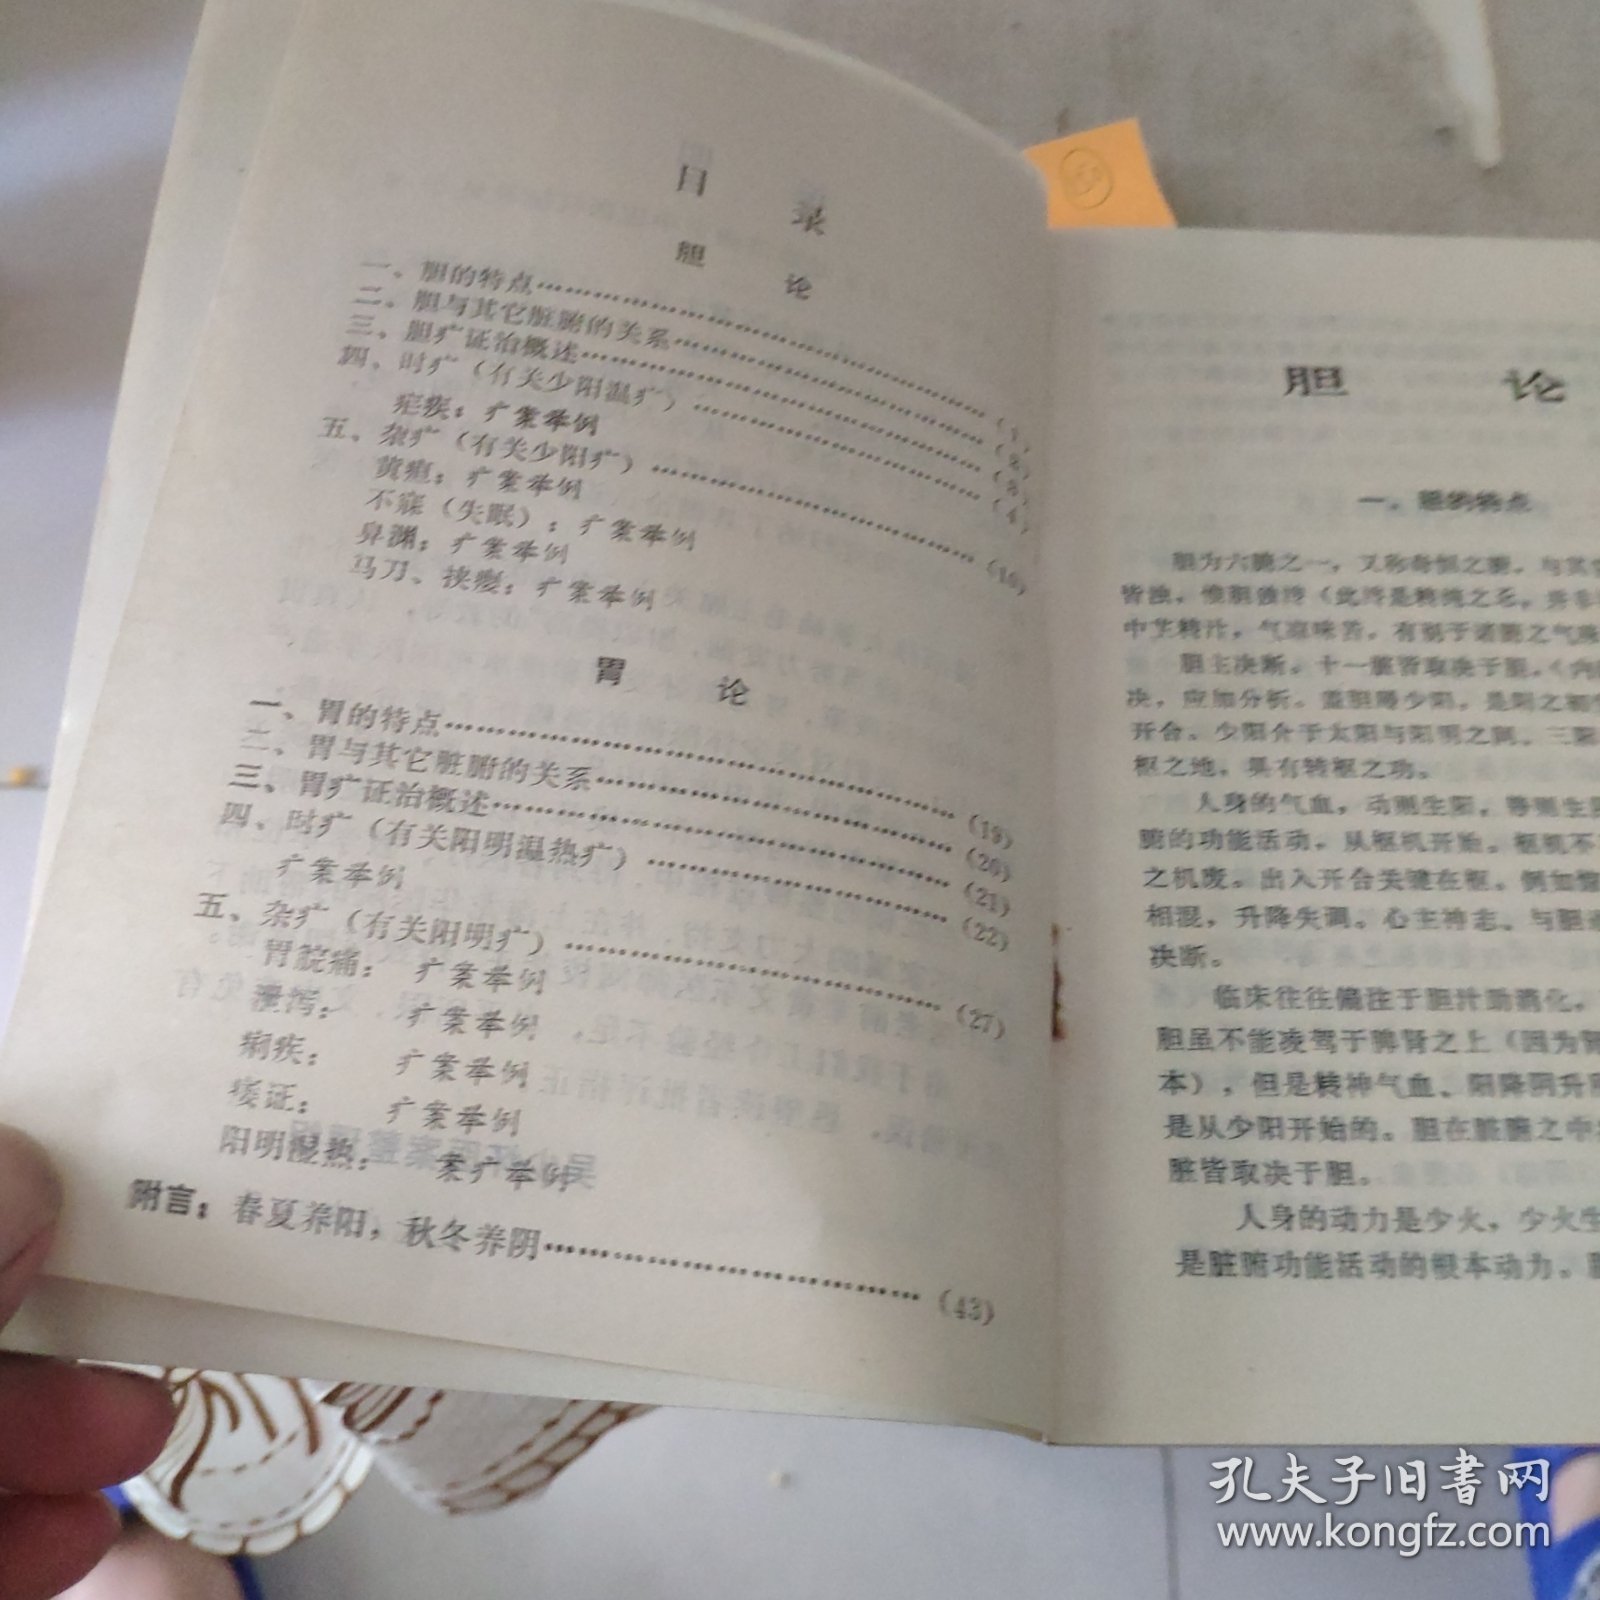 目 录
胆 论
一、胆的特点……………………(1)
二、胆与其它脏腑的关系……………………(2)
三、胆疒证治概述……………………(3)
四、时疒（有关少阳温疒）……………………(4)
疟疾：疒案举例
五、杂疒（有关少阳疒）……………………(10)
黄疸：疒案举例
不寐（失眠）：疒案举例
鼻渊：疒案举例
马刀、挟瘿：疒案举例
胃 论
一、胃的特点……………………(19)
二、胃与其它脏腑的关系……………………(20)
三、胃疒证治概述……………………(21)
四、时疒（有关阳明温热疒）……………………(22)
疒案举例
五、杂疒（有关阳明疒）……………………(27)
胃脘痛： 疒案举例
泄泻： 疒案举例
痢疾： 疒案举例
痿证： 疒案举例
阳明湿热： 案疒举例
附言：春夏养阳，秋冬养阴……………………(43)
胆 论
一、胆的特点
胆为六腑之一，又称奇恒之腑，与其
皆浊，惟胆独
中生精汁，气寒味苦，有别于诸腑之气
胆主决断，十一脏皆取决于胆。
决，应加分析。盖胆属少阳，是阳之初
开合。少阳介于太阳与阳明之间，三阳
枢之地，具有转枢之功。
人身的气血，动则生阳，静则生
腑的功能活动，从枢机开始。枢机不
之机废。出入开合关键在枢。例如
相混，升降失调。心主神志，与胆
决断。
临床往往偏注于胆汁助消化，
胆虽不能凌驾于脾肾之上（因为肾
本），但是转神气血、阳降阴升
是从少阳开始的。胆在脏腑之中
脏皆取决于胆。
人身的动力是少火，少火生
是脏腑功能活动的根本动力。
5
孔夫子旧书网
www.kongfz.com